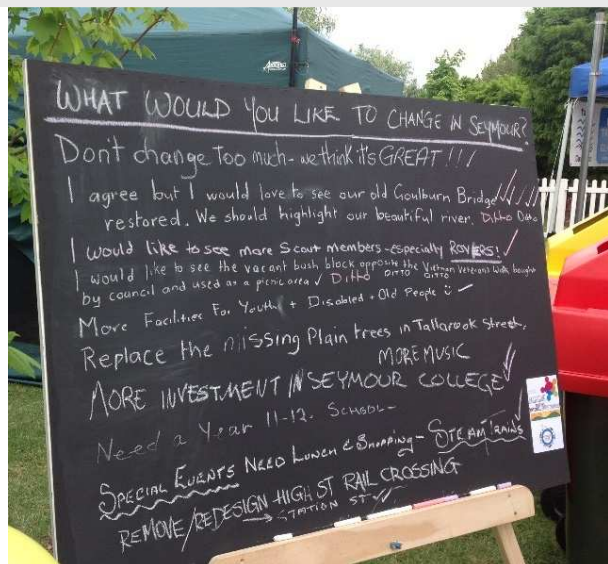 WHAT WOULD YOU LIKE TO CHANGE IN SEYMOUR?
Don't change Too much - we think it's GREAT!!!
I agree but I would love to see our old Goulburn Bridge
restored. We should highlight our beautiful river. Ditto Ditto
I would like to see more Scout members - especially ROVERS!
I would like to see the vacant bush block opposite the Vietnam Veterans Walk bought
by council and used as a picnic area Ditto DITTO DITTO
More Facilities For Youth + Disabled + Old People
Replace the missing Plain trees in Tallarook Street.
MORE MUSIC
MORE INVESTMENT IN SEYMOUR COLLEGE
Need a Year 11-12. School -
SPECIAL EVENTS NEED LUNCH & SHOPPING - STEAM TRAINS
REMOVE/REDESIGN HIGH ST RAIL CROSSING
→ STATION ST